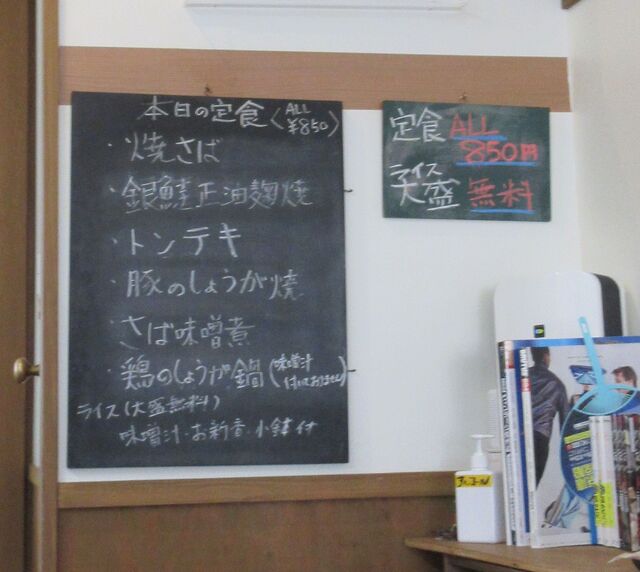 本日の定食〈ALL ¥850〉
・焼さば
・銀鮭正油麹焼
・トンテキ
・豚のしょうが焼
・さば味噌煮
・鶏のしょうが鍋(味噌汁
付いておりません)
ライス(大盛無料)
味噌汁・お新香・小鉢付
定食 ALL
850円
ライス
大盛 無料
アルコール